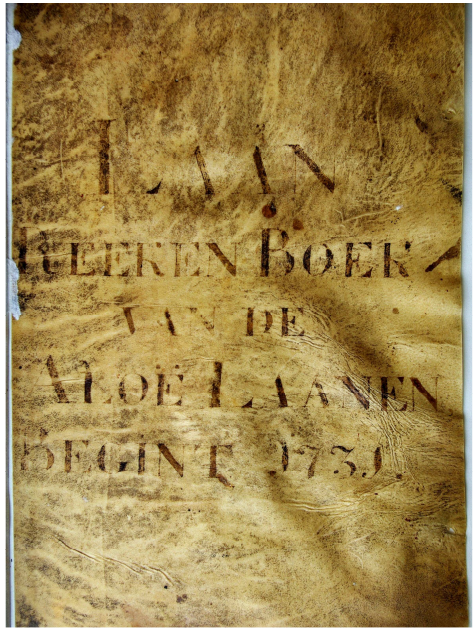 LAAN
REEKEN BOEK
VAN DE
ALOË LAANEN
BEGINT 1731.